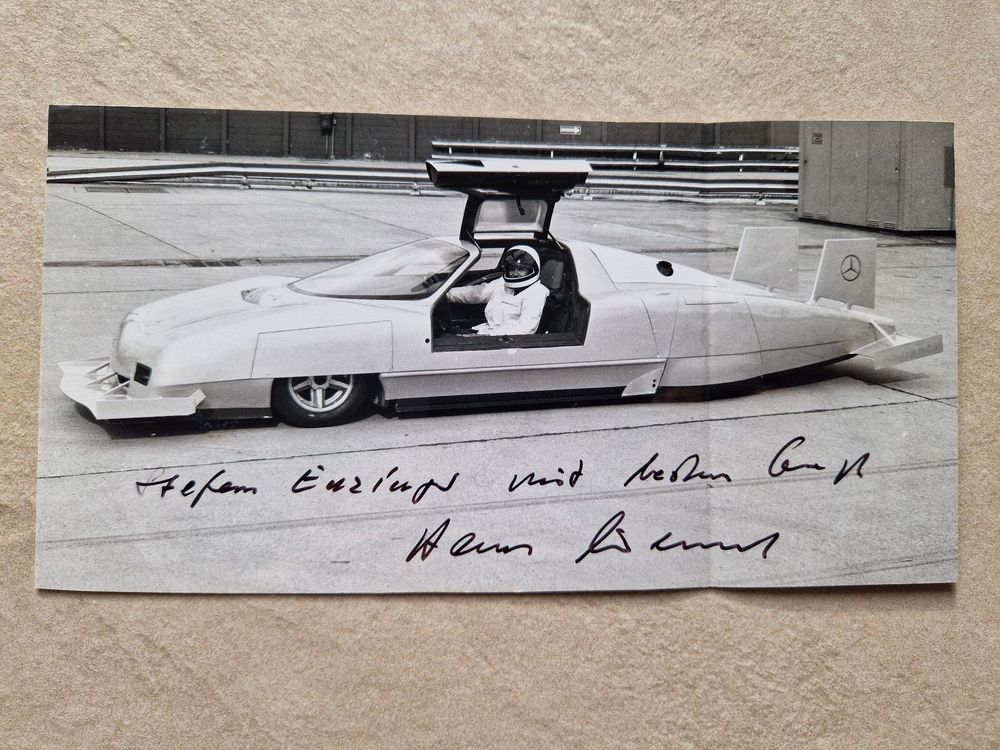 Stefan Enzinger mit besten Gruß
Hans Liebold